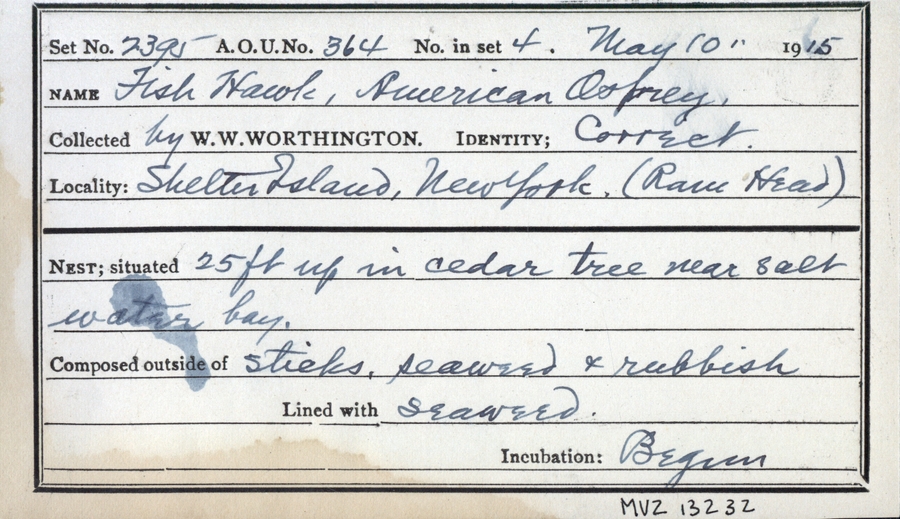 Set No. 2395 A.O.U. No. 364 No. in set 4. May 10" 1915
NAME Fish Hawk, American Osprey.
Collected by W. W. WORTHINGTON. IDENTITY; Correct.
Locality: Shelter Island, New York. (Ram Head)
NEST; situated 25 ft up in cedar tree near salt
water bay.
Composed outside of sticks, seaweed & rubbish
Lined with seaweed.
Incubation: Begun
MVZ 13232